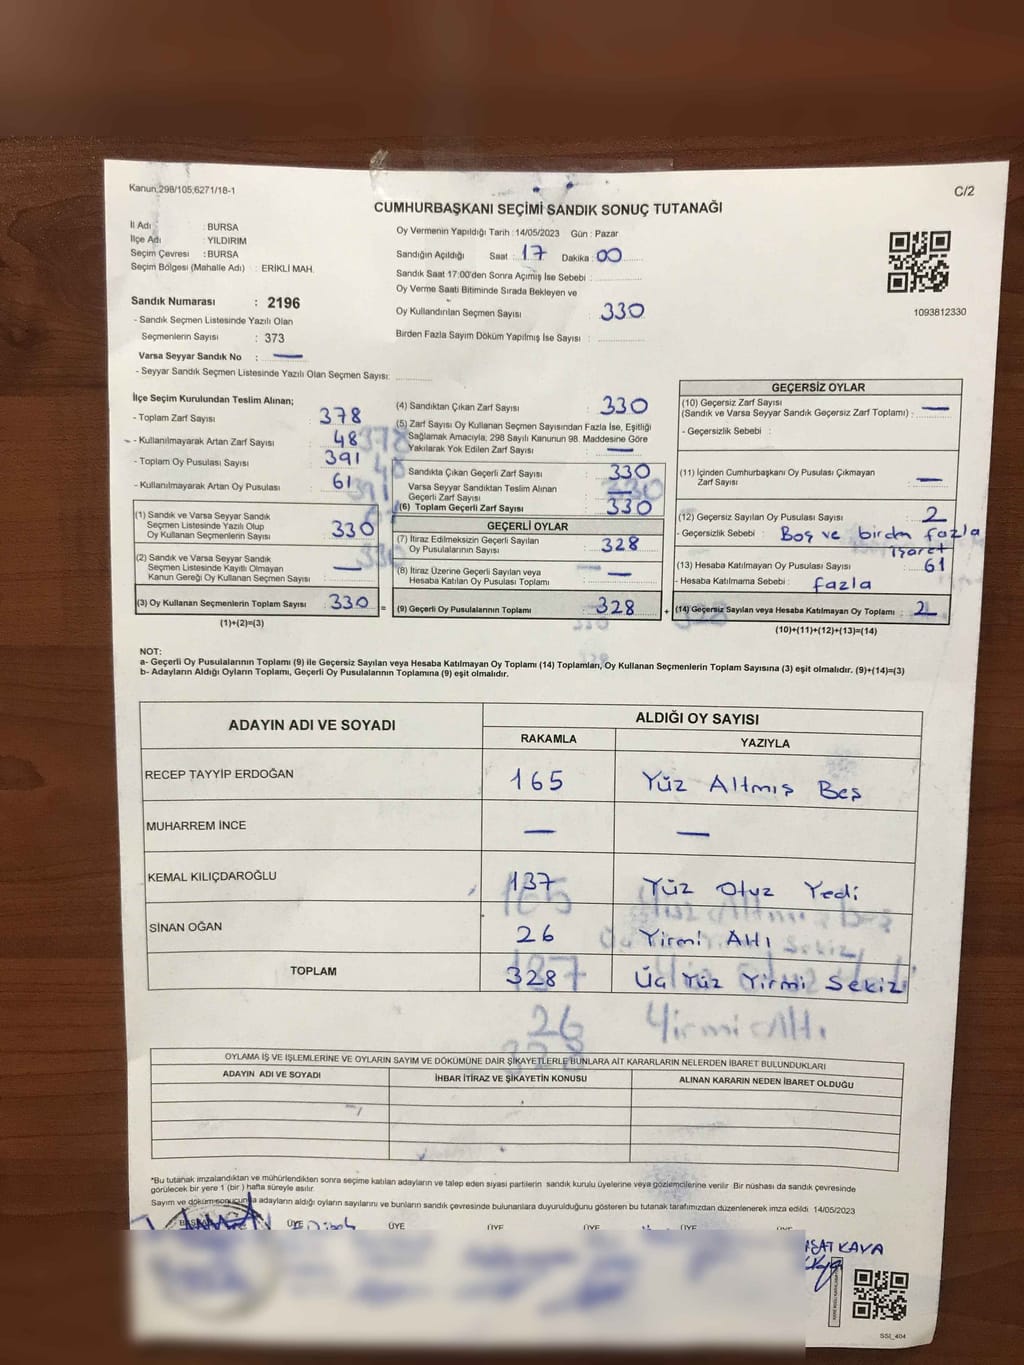 Kanun,298/105,6271/18-1
C/2
CUMHURBAŞKANI SEÇİMİ SANDIK SONUÇ TUTANAĞI
İl Adı : BURSA
İlçe Adı : YILDIRIM
Seçim Çevresi : BURSA
Seçim Bölgesi (Mahalle Adı) : ERİKLİ MAH.
Sandık Numarası : 2196
- Sandık Seçmen Listesinde Yazılı Olan
Seçmenlerin Sayısı : 373
Varsa Seyyar Sandık No : —
- Seyyar Sandık Seçmen Listesinde Yazılı Olan Seçmen Sayısı:
Oy Vermenin Yapıldığı Tarih : 14/05/2023 Gün : Pazar
Sandığın Açıldığı Saat : 17 Dakika : 00
Sandık Saat 17:00'den Sonra Açılmış İse Sebebi :
Oy Verme Saati Bitiminde Sırada Bekleyen ve
Oy Kullandırılan Seçmen Sayısı : 330
Birden Fazla Sayım Döküm Yapılmış İse Sayısı :
1093812330
İlçe Seçim Kurulundan Teslim Alınan;
- Toplam Zarf Sayısı : 378
- Kullanılmayarak Artan Zarf Sayısı : 48
- Toplam Oy Pusulası Sayısı : 391
- Kullanılmayarak Artan Oy Pusulası : 61
(1) Sandık ve Varsa Seyyar Sandık
Seçmen Listesinde Yazılı Olup
Oy Kullanan Seçmenlerin Sayısı : 330
(2) Sandık ve Varsa Seyyar Sandık
Seçmen Listesinde Kayıtlı Olmayan
Kanun Gereği Oy Kullanan Seçmen Sayısı : —
(3) Oy Kullanan Seçmenlerin Toplam Sayısı : 330 =
(1)+(2)=(3)
(4) Sandıktan Çıkan Zarf Sayısı : 330
(5) Zarf Sayısı Oy Kullanan Seçmen Sayısından Fazla İse, Eşitliği
Sağlamak Amacıyla; 298 Sayılı Kanunun 98. Maddesine Göre
Yakılarak Yok Edilen Zarf Sayısı : —
Sandıkta Çıkan Geçerli Zarf Sayısı : 330
Varsa Seyyar Sandıktan Teslim Alınan
Geçerli Zarf Sayısı : —
(6) Toplam Geçerli Zarf Sayısı : 330
GEÇERLİ OYLAR
(7) İtiraz Edilmeksizin Geçerli Sayılan
Oy Pusulalarının Sayısı : 328
(8) İtiraz Üzerine Geçerli Sayılan veya
Hesaba Katılan Oy Pusulası Toplamı : —
(9) Geçerli Oy Pusulalarının Toplamı : 328 +
GEÇERSİZ OYLAR
(10) Geçersiz Zarf Sayısı
(Sandık ve Varsa Seyyar Sandık Geçersiz Zarf Toplamı) : —
- Geçersizlik Sebebi :
(11) İçinden Cumhurbaşkanı Oy Pusulası Çıkmayan
Zarf Sayısı : —
(12) Geçersiz Sayılan Oy Pusulası Sayısı : 2
- Geçersizlik Sebebi : Boş ve birden fazla
işaret
(13) Hesaba Katılmayan Oy Pusulası Sayısı : 61
- Hesaba Katılmama Sebebi : fazla
(14) Geçersiz Sayılan veya Hesaba Katılmayan Oy Toplamı : 2
(10)+(11)+(12)+(13)=(14)
NOT:
a- Geçerli Oy Pusulalarının Toplamı (9) ile Geçersiz Sayılan veya Hesaba Katılmayan Oy Toplamı (14) Toplamları, Oy Kullanan Seçmenlerin Toplam Sayısına (3) eşit olmalıdır. (9)+(14)=(3)
b- Adayların Aldığı Oyların Toplamı, Geçerli Oy Pusulalarının Toplamına (9) eşit olmalıdır.
ADAYIN ADI VE SOYADI
ALDIĞI OY SAYISI
RAKAMLA YAZIYLA
RECEP TAYYİP ERDOĞAN 165 Yüz Altmış Beş
MUHARREM İNCE — —
KEMAL KILIÇDAROĞLU 137 Yüz Otuz Yedi
SİNAN OĞAN 26 Yirmi Altı
TOPLAM 328 Üç Yüz Yirmi Sekiz
26 Yirmi Altı
328
OYLAMA İŞ VE İŞLEMLERİNE VE OYLARIN SAYIM VE DÖKÜMÜNE DAİR ŞİKAYETLERLE BUNLARA AİT KARARLARIN NELERDEN İBARET BULUNDUKLARI
ADAYIN ADI VE SOYADI İHBAR İTİRAZ VE ŞİKAYETİN KONUSU ALINAN KARARIN NEDEN İBARET OLDUĞU
*Bu tutanak imzalandıktan ve mühürlendikten sonra seçime katılan adayların ve talep eden siyasi partilerin sandık kurulu üyelerine veya gözlemcilerine verilir. Bir nüshası da sandık çevresinde
görülecek bir yere 1 (bir ) hafta süreyle asılır.
Sayım ve döküm sonucunda adayların aldığı oyların sayılarını ve bunların sandık çevresinde bulunanlara duyurulduğunu gösteren bu tutanak tarafımızdan düzenlenerek imza edildi. 14/05/2023
ÜYE ÜYE ÜYE ÜYE ÜYE
KAYA
SSI_404